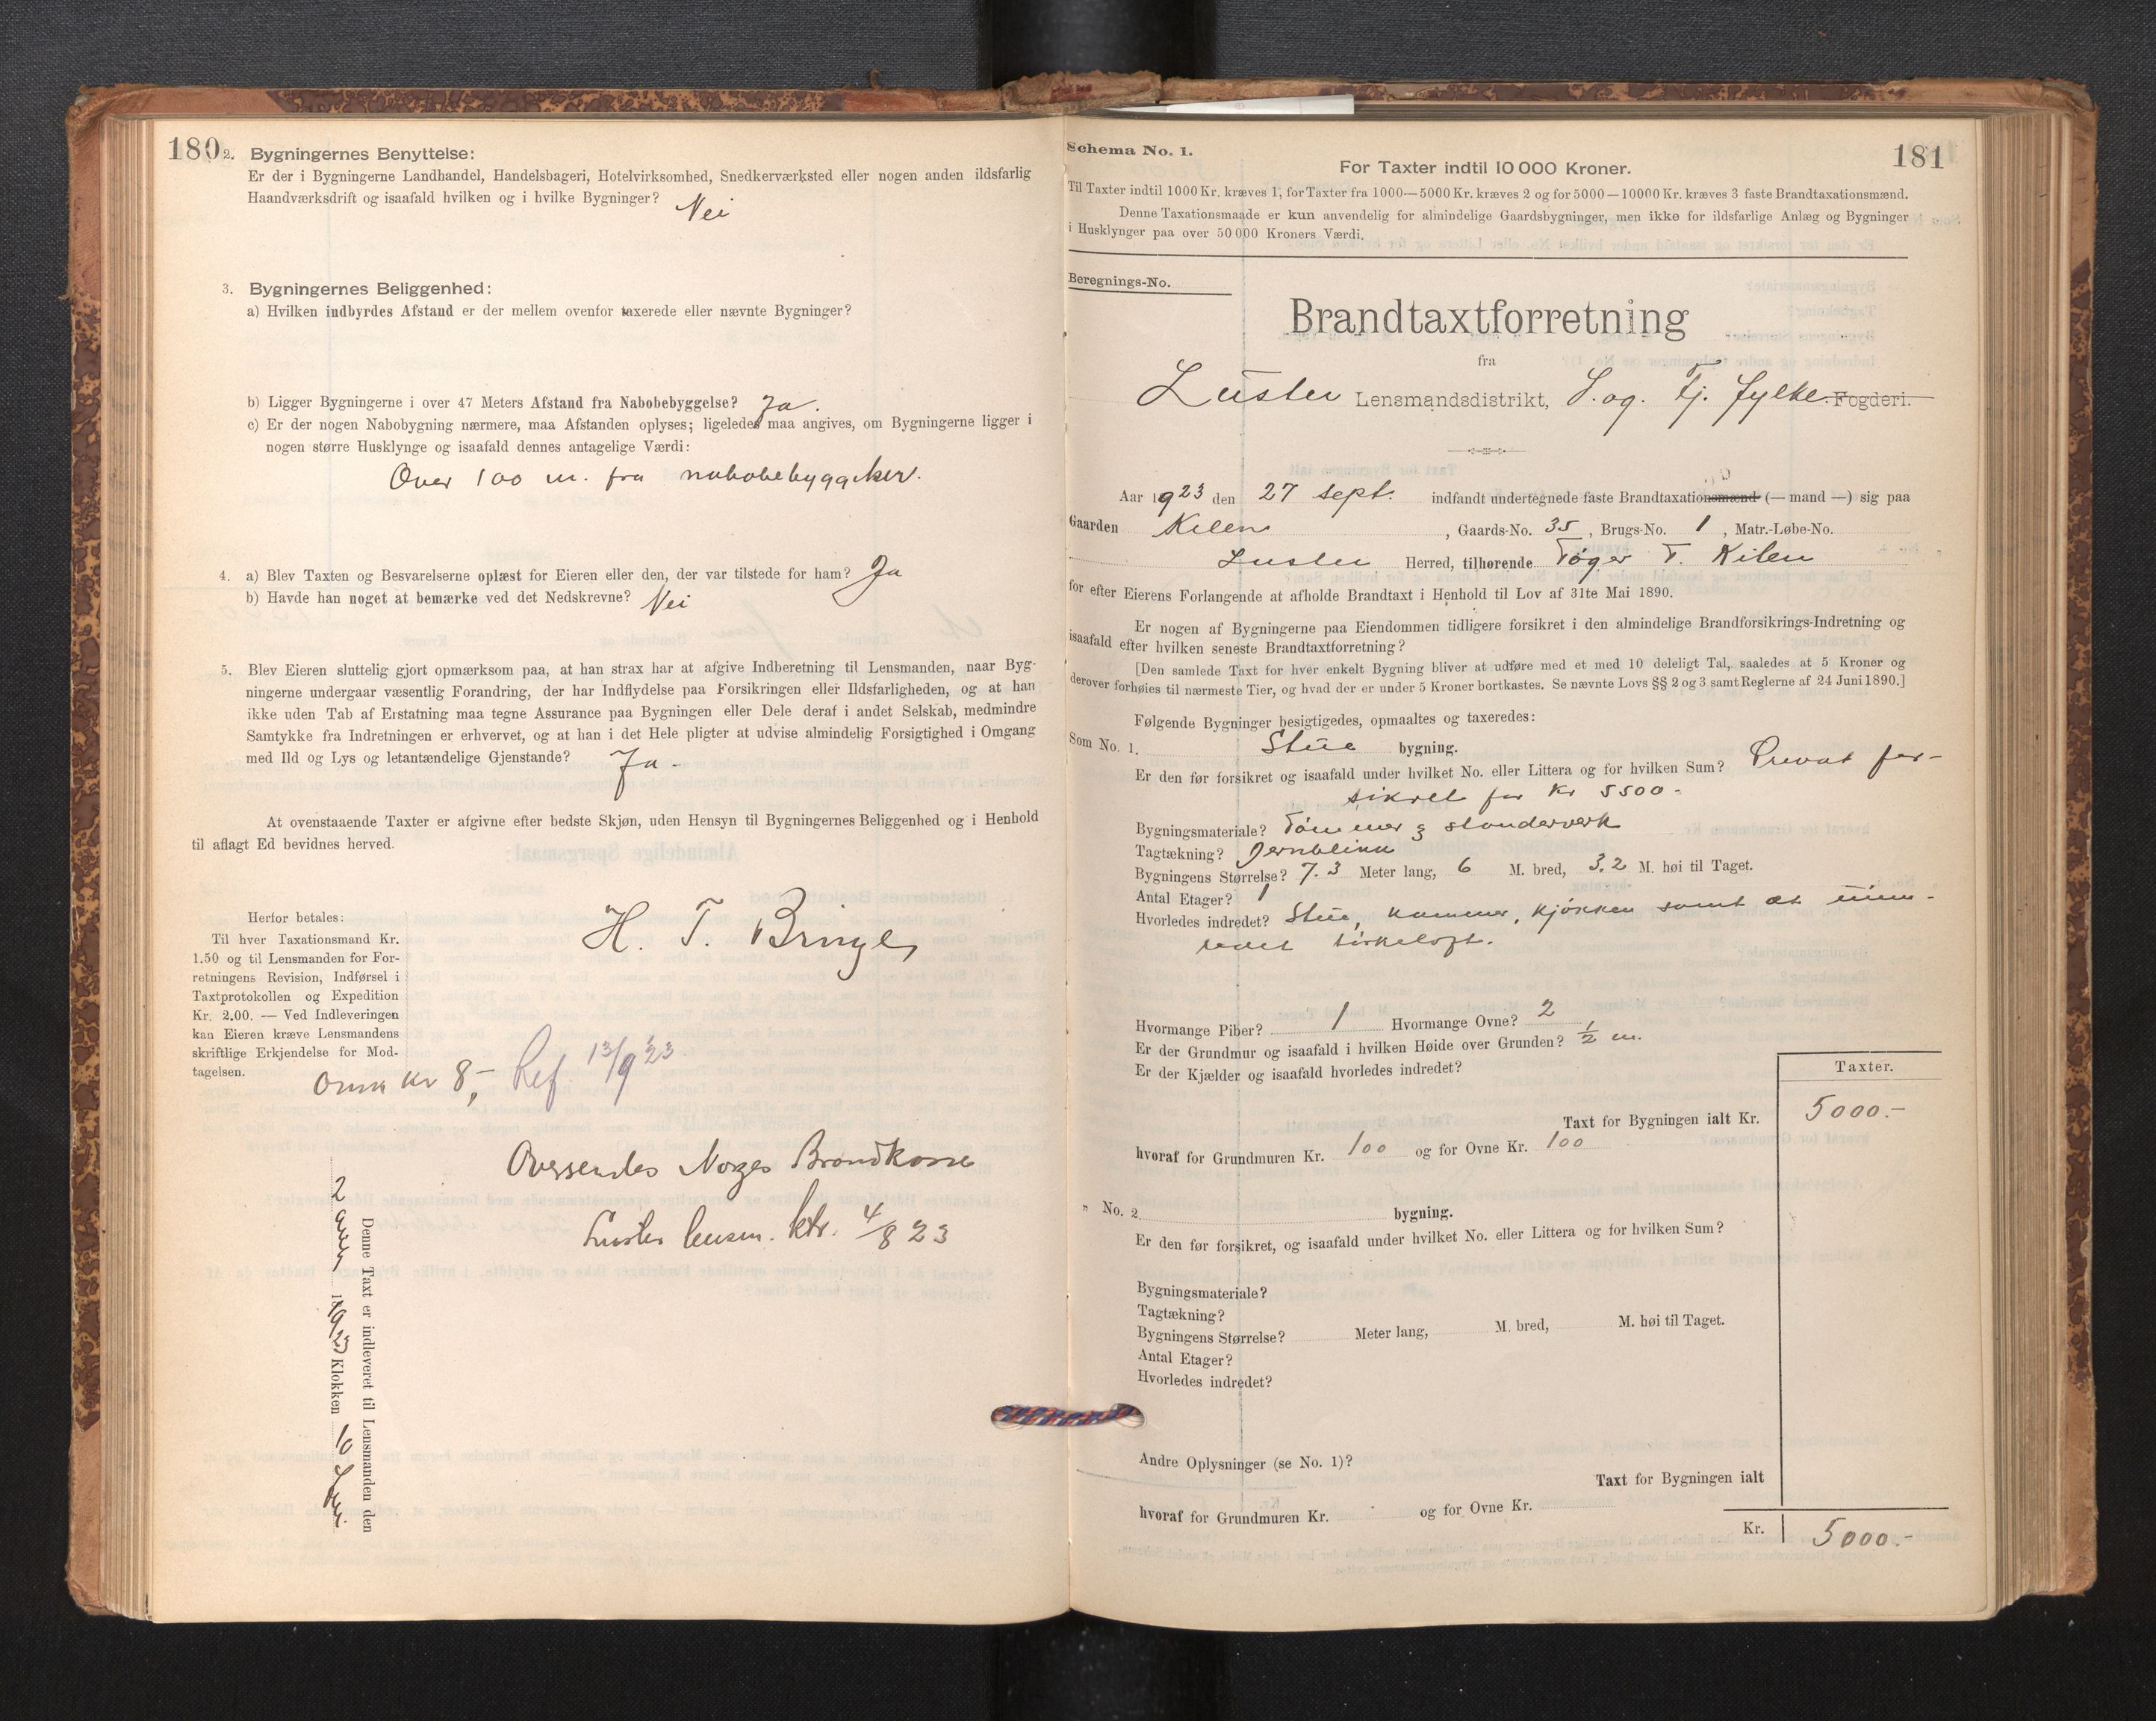 180
2. Bygningernes Benyttelse:
Er der i Bygningerne Landhandel, Handelsbageri, Hotelvirksomhed, Snedkerværksted eller nogen anden ildsfarlig
Haandværksdrift og isaafald hvilken og i hvilke Bygninger? Nei
3. Bygningernes Beliggenhed:
a) Hvilken indbyrdes Afstand er der mellem ovenfor taxerede eller nævnte Bygninger?
b) Ligger Bygningerne i over 47 Meters Afstand fra Nabobebyggelse? Ja.
c) Er der nogen Nabobygning nærmere, maa Afstanden oplyses; ligeledes maa angives, om Bygningerne ligger i
nogen større Husklynge og isaafald dennes antagelige Værdi:
Over 100 m. fra
4. a) Blev Taxten og Besvarelserne oplæst for Eieren eller den, der var tilstede for ham? Ja
b) Havde han noget at bemærke ved det Nedskrevne? Nei
5. Blev Eieren sluttelig gjort opmærksom paa, at han strax har at afgive Indberetning til Lensmanden, naar Byg-
ningerne undergaar væsentlig Forandring, der har Indflydelse paa Forsikringen eller Ildsfarligheden, og at han
ikke uden Tab af Erstatning maa tegne Assurance paa Bygningen eller Dele deraf i andet Selskab, medmindre
Samtykke fra Indretningen er erhvervet, og at han i det Hele pligter at udvise almindelig Forsigtighed i Omgang
med Ild og Lys og letantændelige Gjenstande? Ja -
At ovenstaaende Taxter er afgivne efter bedste Skjøn, uden Hensyn til Bygningernes Beliggenhed og i Henhold
til aflagt Ed bevidnes herved.
H. T. Bringe
Herfor betales:
Til hver Taxationsmand Kr.
1.50 og til Lensmanden for For-
retningens Revision, Indførsel i
Taxtprotokollen og Expedition
Kr. 2.00. — Ved Indleveringen
kan Eieren kræve Lensmandens
skriftlige Erkjendelse for Mod-
tagelsen.
kr 8,- Ref. 13/9 23
Oversendes Norges Brandkasse
Luster lensm. ktr. 4/8 23
Denne Taxt er indleveret til Lensmanden den
2 1923 Klokken 10
Schema No. 1.
181
For Taxter indtil 10 000 Kroner.
Til Taxter indtil 1000 Kr. kræves 1, for Taxter fra 1000—5000 Kr. kræves 2 og for 5000—10000 Kr. kræves 3 faste Brandtaxationsmænd.
Denne Taxationsmaade er kun anvendelig for almindelige Gaardsbygninger, men ikke for ildsfarlige Anlæg og Bygninger
i Husklynger paa over 50 000 Kroners Værdi.
Beregnings-No.
Brandtaxtforretning
fra
Luster Lensmandsdistrikt, S. og. Fj. fylke. Fogderi.
Aar 1923 den 27 sept. indfandt undertegnede faste Brandtaxationsmænd (— mand —) sig paa
Gaarden Kilen, Gaards-No. 35, Brugs-No. 1, Matr.-Løbe-No.
Luster Herred, tilhørende Tøger T. Kilen
for efter Eierens Forlangende at afholde Brandtaxt i Henhold til Lov af 31te Mai 1890.
Er nogen af Bygningerne paa Eiendommen tidligere forsikret i den almindelige Brandforsikrings-Indretning og
isaafald efter hvilken seneste Brandtaxtforretning?
[Den samlede Taxt for hver enkelt Bygning bliver at udføre med et med 10 deleligt Tal, saaledes at 5 Kroner og
derover forhøies til nærmeste Tier, og hvad der er under 5 Kroner bortkastes. Se nævnte Lovs §§ 2 og 3 samt Reglerne af 24 Juni 1890.]
Følgende Bygninger besigtigedes, opmaaltes og taxeredes:
Som No. 1. Stue bygning.
Er den før forsikret og isaafald under hvilket No. eller Littera og for hvilken Sum? Privat for-
sikret for Kr 5500 -
Bygningsmateriale? Tømmer & standerverk
Tagtækning? Jernblikk
Bygningens Størrelse? 7.3 Meter lang, 6 M. bred, 3.2 M. høi til Taget.
Antal Etager? 1
Hvorledes indredet? Stue, kammer, kjøkken samt et uinn-
redet
Hvormange Piber? 1 Hvormange Ovne? 2
Er der Grundmur og isaafald i hvilken Høide over Grunden? 1/2 m.
Er der Kjælder og isaafald hvorledes indredet?
Taxter.
Taxt for Bygningen ialt Kr. 5000.-
hvoraf for Grundmuren Kr. 100 og for Ovne Kr. 100
" No. 2. bygning.
Er den før forsikret, og isaafald under hvilket No. eller Littera og for hvilken Sum?
Bygningsmateriale?
Tagtækning?
Bygningens Størrelse? Meter lang, M. bred, M. høi til Taget.
Antal Etager?
Hvorledes indredet?
Andre Oplysninger (se No. 1)?
Taxt for Bygningen ialt
hvoraf for Grundmuren Kr. og for Ovne Kr.
Kr. 5000.-